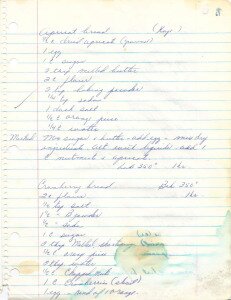 Apricot bread (Kay)
1/2 c. dried apricot
1 egg
1 c sugar
2 tbsp melted butter
2 c flour
3 tsp baking powder
1/4 tsp soda
1 dash salt
1/2 c orange juice
1/4 c water
Method Mix sugar & butter - add egg - mix dry
ingredients alt. with liquids - add 1
c nutmeat & apricot
bake 350° 1 hr
Cranberry bread Bake 350°
2 c flour 1 hr.
1/2 tsp salt
1 1/2 B. powder
1/2 Soda
1 c. sugar
2 tbsp melted shortening
1/2 c orange juice
2 tbsp water
1/2 c. Chopped Nuts
1 c. Cranberries
1 egg - rind of 1 orange